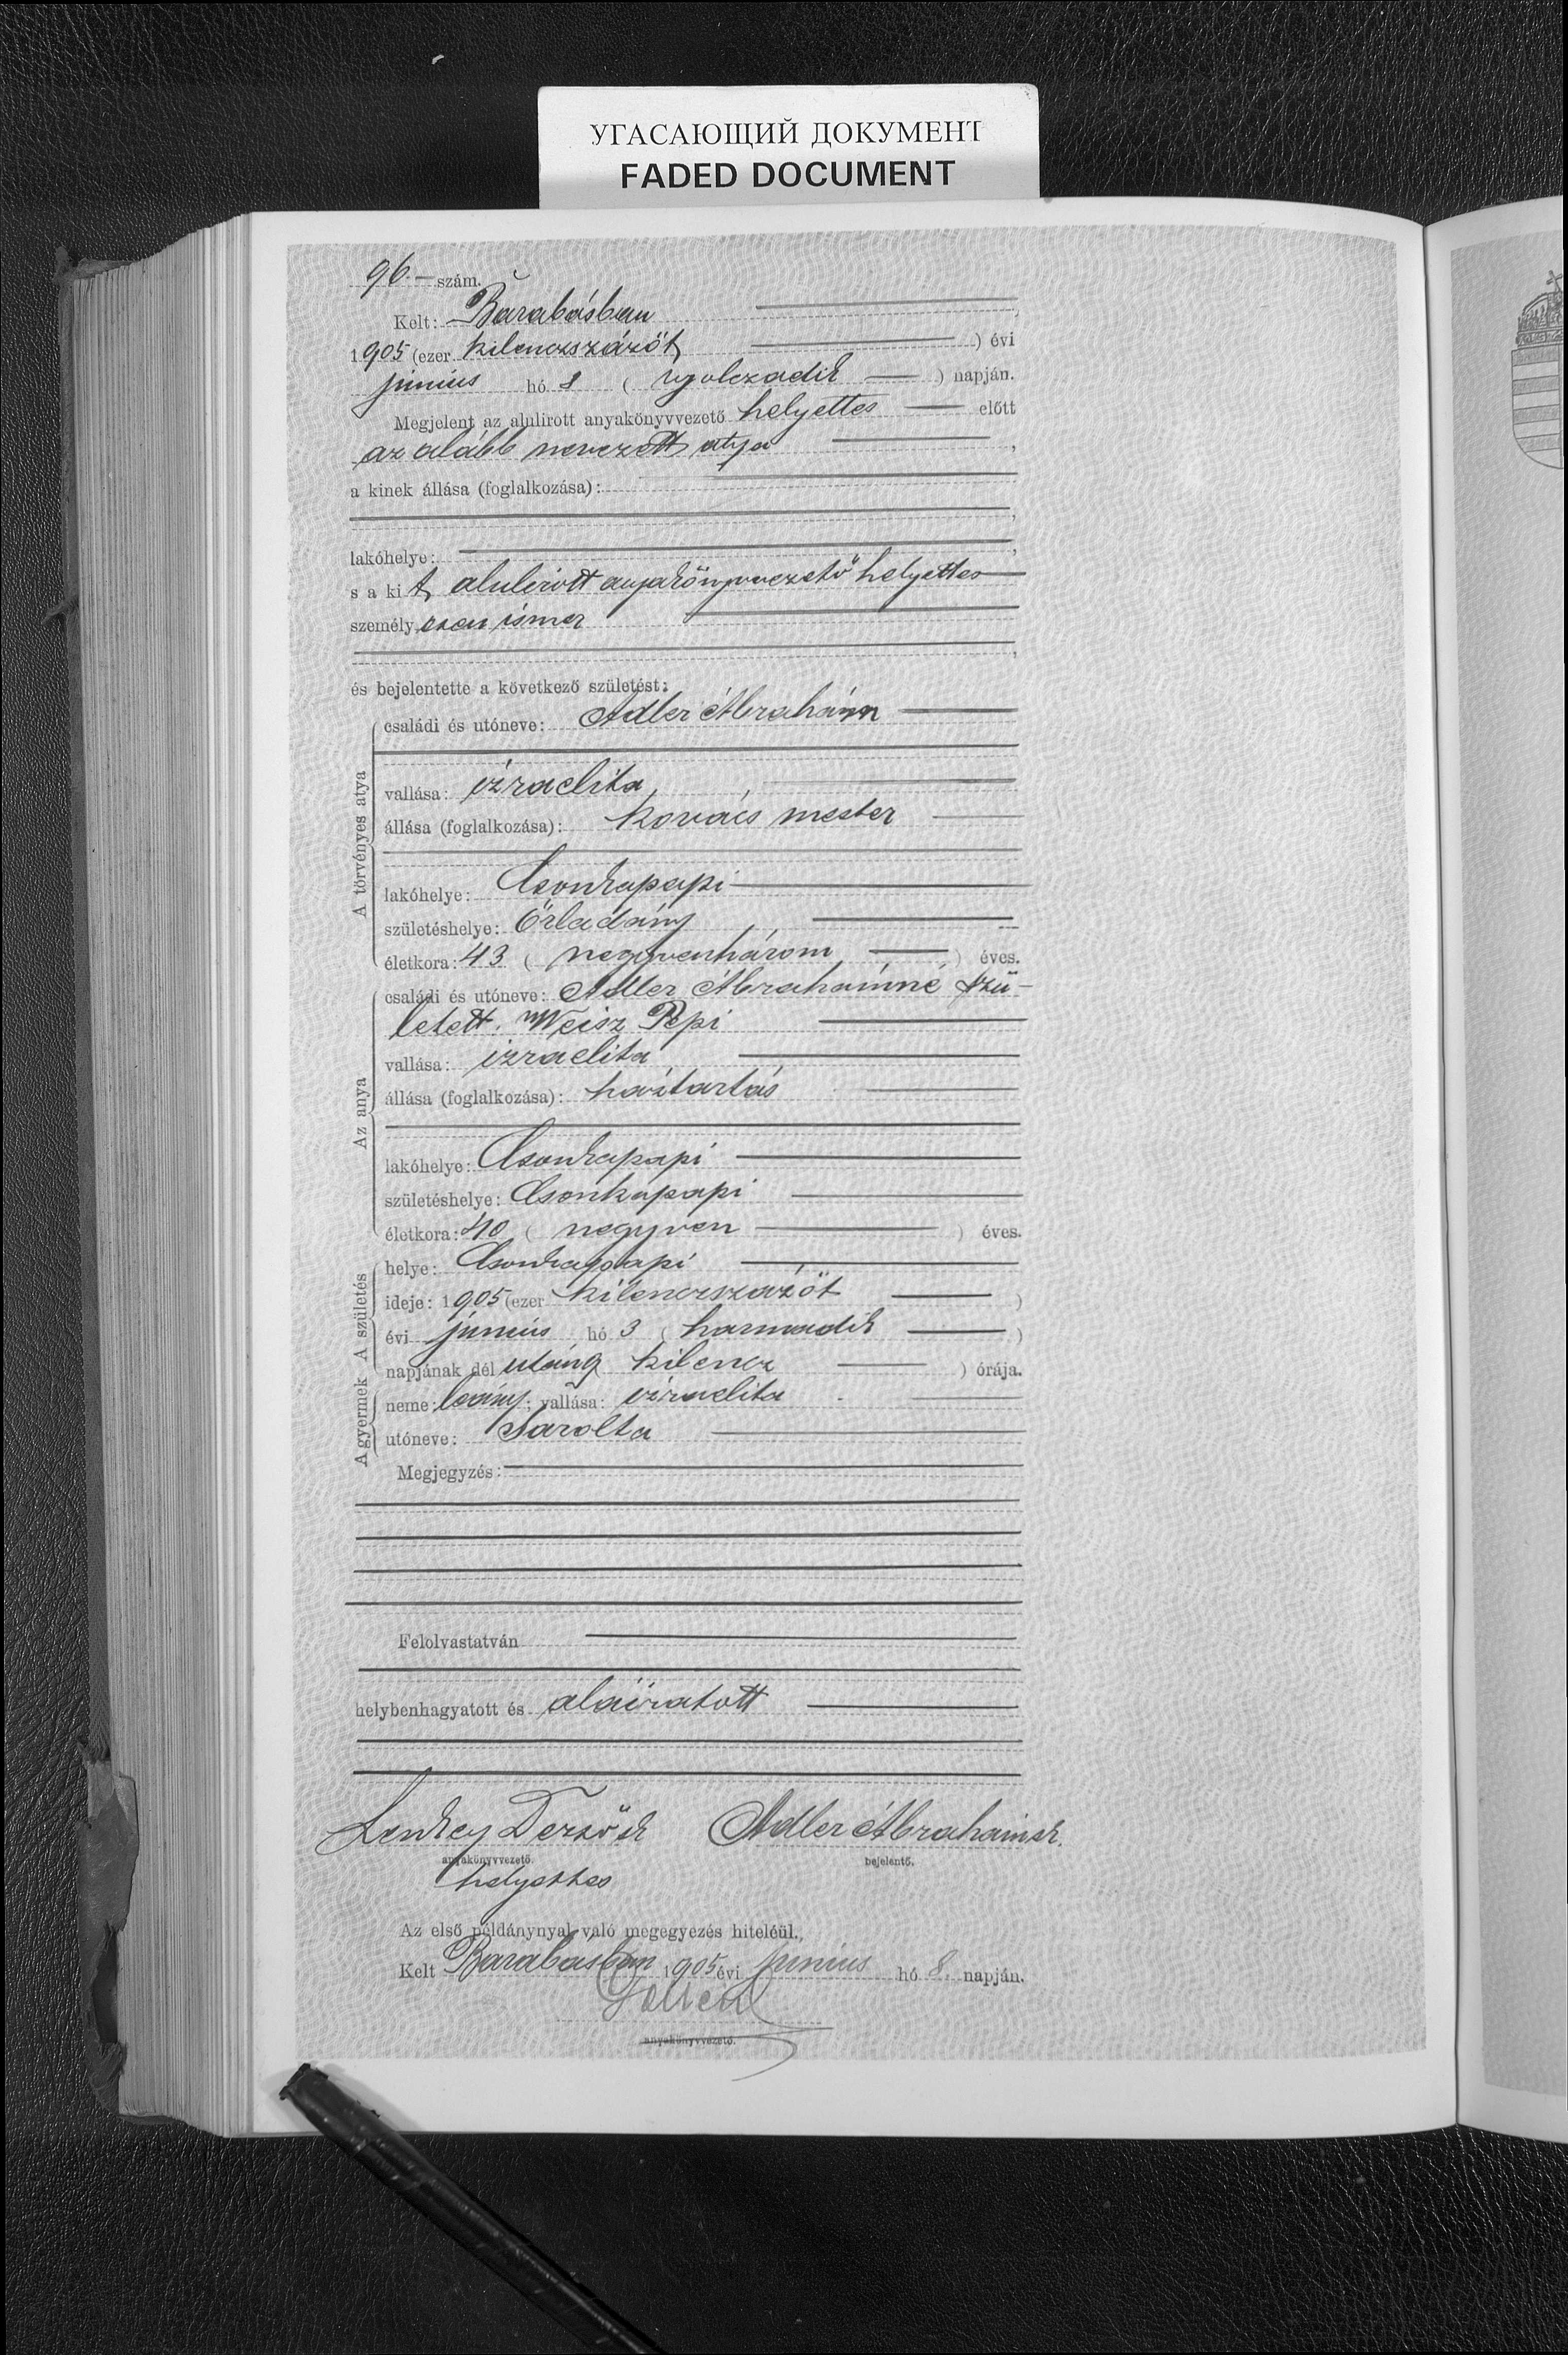 УГАСАЮЩИЙ ДОКУМЕНТ
FADED DOCUMENT
96 szám.
Kelt: Barabásban
1905 (ezer kilenczszázöt) évi
junius hó 8 (nyolczadik) napján.
Megjelent az alulirott anyakönyvvezető helyettes előtt
az alább nevezett atya,
a kinek állása (foglalkozása):
lakóhelye:
s a kit alulirott anyakönyvvezető helyettes
személyesen ismer
és bejelentette a következő születést:
A törvényes atya
családi és utóneve: Adler Ábrahám
vallása: izraelita
állása (foglalkozása): kovács mester
lakóhelye: Csonkapapi
születéshelye: Őrladány
életkora: 43 (negyvenhárom) éves.
Az anya
családi és utóneve: Adler Ábrahámné szü-
letett Weisz Pepi
vallása: izraelita
állása (foglalkozása): háztartás
lakóhelye: Csonkapapi
születéshelye: Csonkapapi
életkora: 40 (negyven) éves.
A születés
helye: Csonkapapi
ideje: 1905 (ezer kilenczszázöt)
évi junius hó 3 (harmadik)
napjának dél után 9 kilencz) órája.
A gyermek
neme: leány; vallása: izraelita
utóneve: Sarolta
Megjegyzés:
Felolvastatván
helybenhagyatott és aláiratott
Lenkey Dezső sk Adler Ábrahám sk.
anyakönyvvezető. bejelentő.
helyettes
Az első példánynyal való megegyezés hiteléül.
Kelt Barabásban 1905 évi junius hó 8. napján.
anyakönyvvezető.